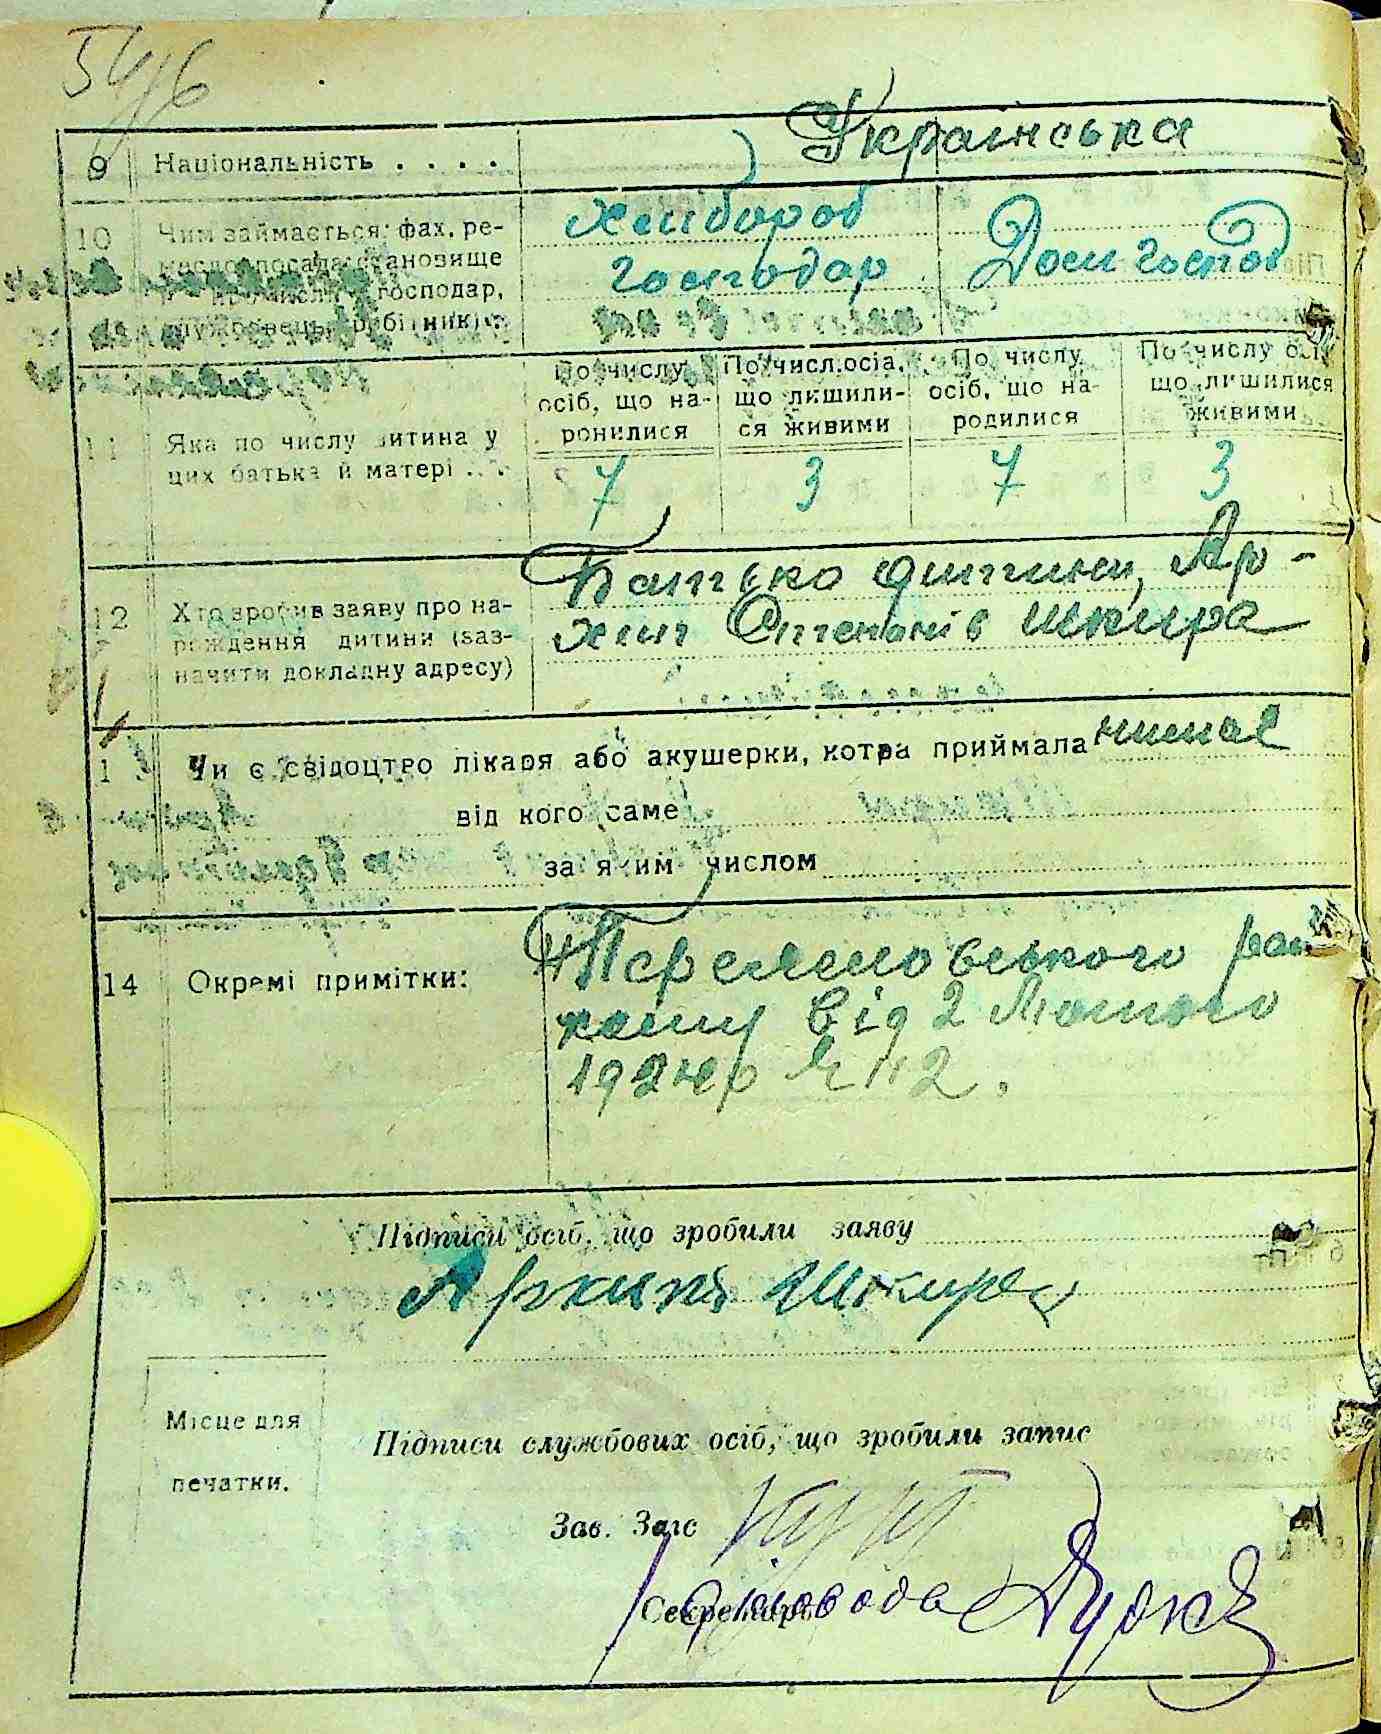 54/6
9 Національність . . . . Українська
10 Чим займається: фах, ре-
месло, посада, становище
в промислі (господар,
службовець, робітник) .
хлибороб
господар
Дом господ
11 Яка по числу дитина у
цих батька й матері . . .
По числу
осіб, що на-
ронилися
По числ.осіа,
що лишили-
ся живими
По числу
осіб, що на-
родилися
По числу осі
що лишилися
живими
7 3 7 3
12 Хто зробив заяву про на-
рождення дитини (заз-
начити докладну адресу)
Батько дитини, Ар-
хип Степанів Шкира
1 Чи є свідоцтво лікаря або акушерки, котра приймала нимає
від кого саме
за яким числом
14 Окремі примітки:
від 2 Лютого
Підписи осіб, що зробили заяву
Архипъ Шкира
Місце для
печатки.
Підписи службових осіб, що зробили запис
Зав. Загс
Секретарь